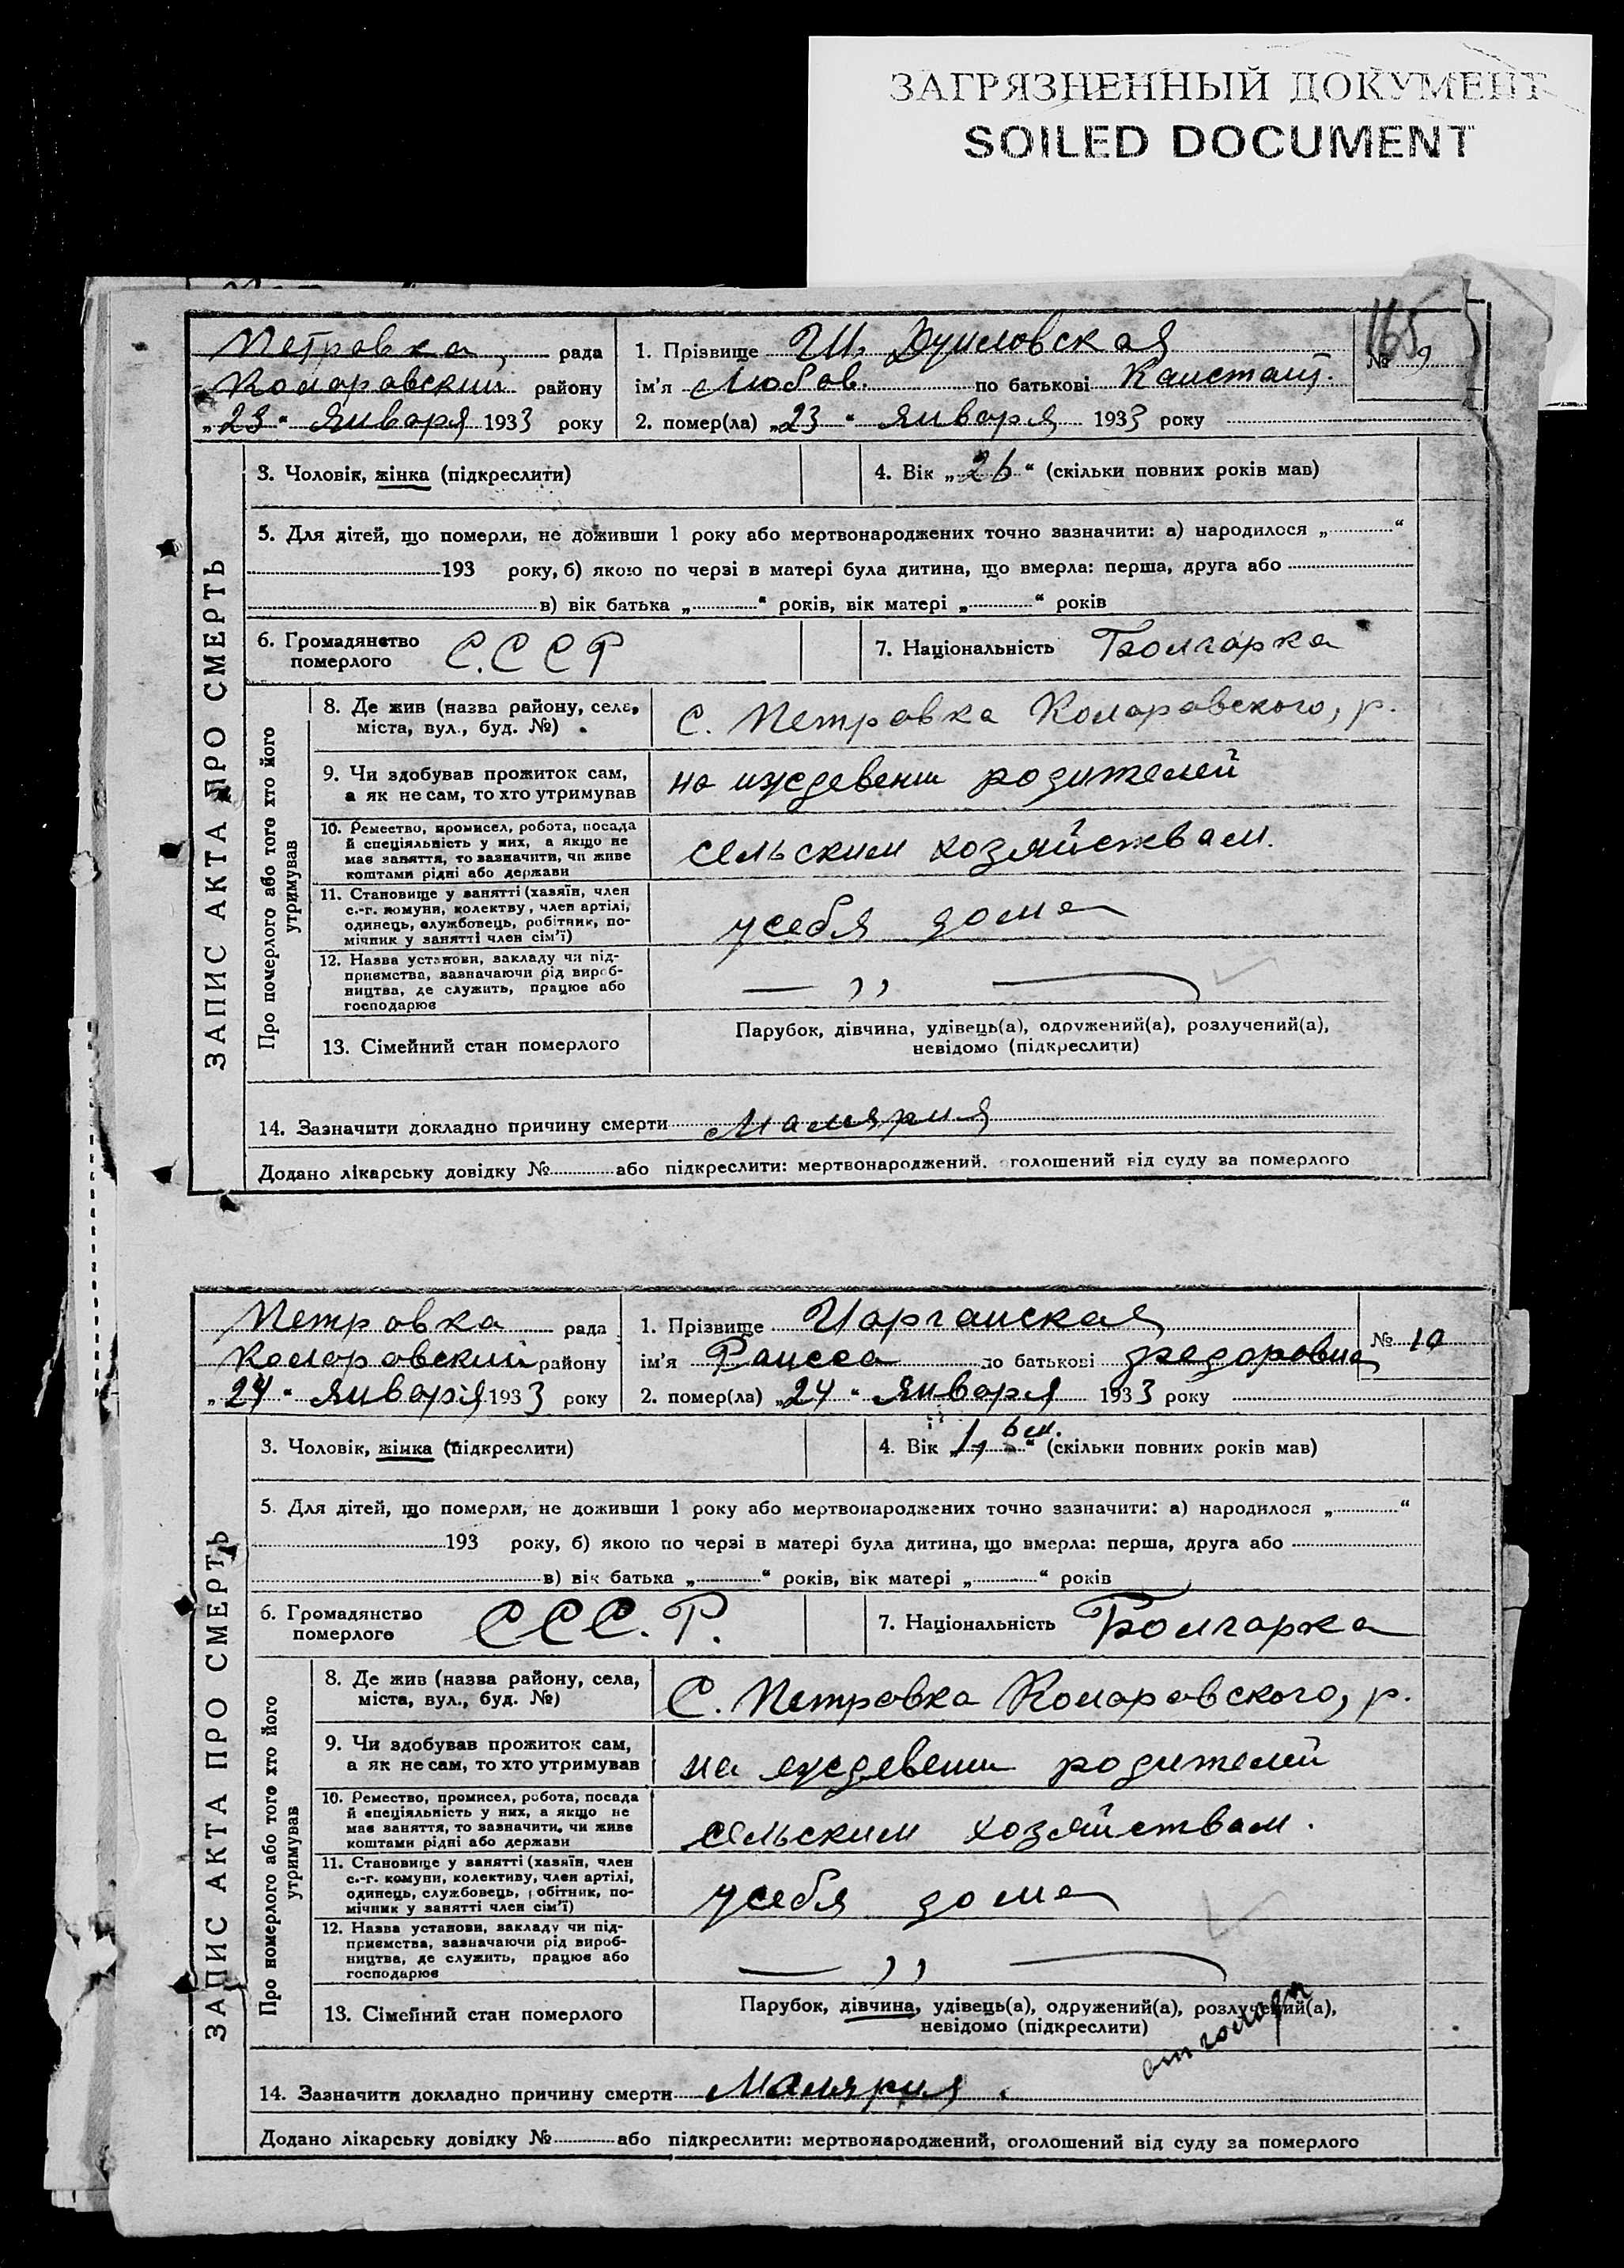 ЗАГРЯЗНЕННЫЙ ДОКУМЕНТ
SOILED DOCUMENT
165
Петровка рада
Коларовский району
„23“ января 1933 року
1. Прізвище Душловская
№ 9
ім'я Любов. по батькові Констант.
2. помер(ла) „23“ января 1933 року
ЗАПИС АКТА ПРО СМЕРТЬ
3. Чоловік, жінка (підкреслити)
4. Вік „26“ (скільки повних років мав)
5. Для дітей, що померли, не доживши 1 року або мертвонароджених точно зазначити: а) народилося „ “
193 року, б) якою по черзі в матері була дитина, що вмерла: перша, друга або
в) вік батька „ “ років, вік матері „ “ років
6. Громадянство померлого С.С С Р
7. Національність Болгарка
Про померлого або того хто його утримував
8. Де жив (назва району, села,
міста, вул., буд. №)
С. Петровка Коларовского, р.
9. Чи здобував прожиток сам,
а як не сам, то хто утримував
на иждевени родителей
10. Ремество, промисел, робота, посада
й спеціяльність у них, а якщо не
має заняття, то зазначити, чи живе
коштами рідні або держави
сельским хозяйствам.
11. Становище у занятті (хазяїн, член
с.-г. комуни, колективу, член артілі,
одинець, службовець, робітник, по-
мічник у занятті член сім'ї)
у себя дома
12. Назва установи, закладу чи під-
приємства, зазначаючи рід вироб-
ництва, де служить, працює або
господарює
— ,, —
13. Сімейний стан померлого
Парубок, дівчина, удівець(а), одружений(а), розлучений(а),
невідомо (підкреслити)
14. Зазначити докладно причину смерти Малярия
Додано лікарську довідку № або підкреслити: мертвонароджений, оголошений від суду за померлого
Петровка рада
Коларовский району
„24“ января 1933 року
1. Прізвище Чорганская
№ 10
ім'я Раисса по батькові Федоровна
2. помер(ла) „24“ января 1933 року
ЗАПИС АКТА ПРО СМЕРТЬ
3. Чоловік, жінка (підкреслити)
4. Вік „1, 6 м.“ (скільки повних років мав)
5. Для дітей, що померли, не доживши 1 року або мертвонароджених точно зазначити: а) народилося „ “
193 року, б) якою по черзі в матері була дитина, що вмерла: перша, друга або
в) вік батька „ “ років, вік матері „ “ років
6. Громадянство померлого С С С. Р.
7. Національність Болгарка
Про померлого або того хто його утримував
8. Де жив (назва району, села,
міста, вул., буд. №)
С. Петровка Коларовского, р.
9. Чи здобував прожиток сам,
а як не сам, то хто утримував
на еждевени родителей
10. Ремество, промисел, робота, посада
й спеціяльність у них, а якщо не
має заняття, то зазначити, чи живе
коштами рідні або держави
сельским хозяйствам.
11. Становище у занятті (хазяїн, член
с.-г. комуни, колективу, член артілі,
одинець, службовець, робітник, по-
мічник у занятті член сім'ї)
у себя дома
12. Назва установи, закладу чи під-
приємства, зазначаючи рід вироб-
ництва, де служить, працює або
господарює
— ,, —
13. Сімейний стан померлого
Парубок, дівчина, удівець(а), одружений(а), розлучений(а),
невідомо (підкреслити)
от голода
14. Зазначити докладно причину смерти Малярия.
Додано лікарську довідку № або підкреслити: мертвонароджений, оголошений від суду за померлого